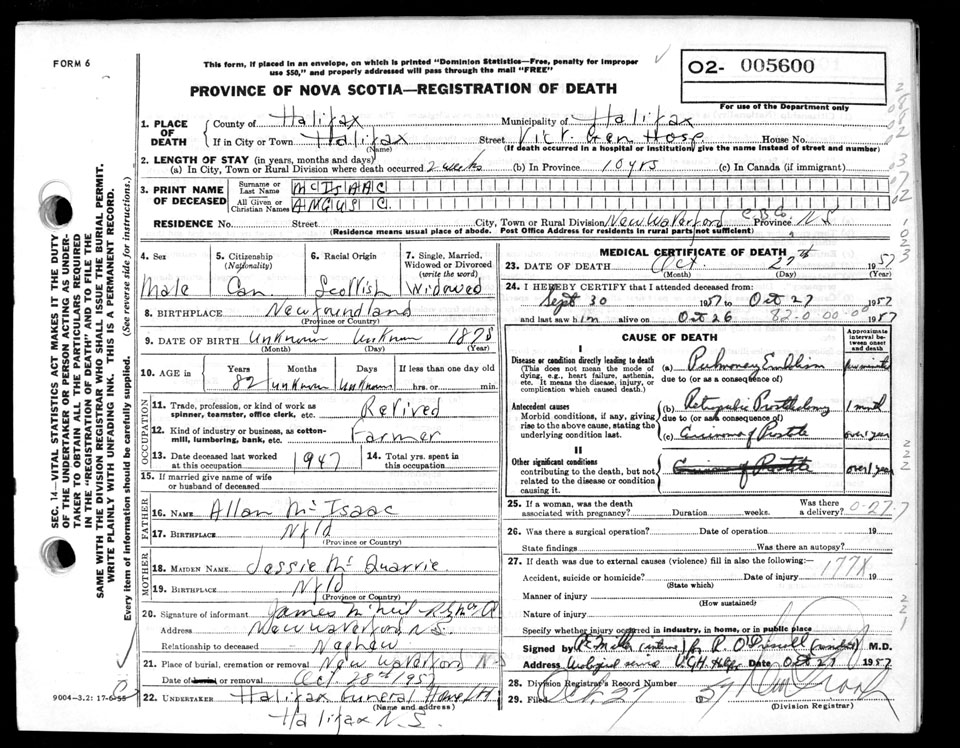 FORM 6
This form, if placed in an envelope, on which is printed "Dominion Statistics—Free, penalty for improper
use $50," and properly addressed will pass through the mail "FREE"
O2- 005600
For use of the Department only
PROVINCE OF NOVA SCOTIA—REGISTRATION OF DEATH
1. PLACE OF DEATH
County of Halifax Municipality of Halifax
If in City or Town Halifax Street Vict. Gen Hosp. House No.
(Name) (If death occurred in a hospital or institution, give the name instead of street and number)
2. LENGTH OF STAY (in years, months and days)
(a) In City, Town or Rural Division where death occurred 2 weeks (b) In Province 10 yrs (c) In Canada (if immigrant)
3. PRINT NAME OF DECEASED
Surname or Last Name McISAAC
All Given or Christian Names ANGUS C.
RESIDENCE No. Street City, Town or Rural Division New Waterford C.B.Co. Province N.S
(Residence means usual place of abode. Post Office Address for residents in rural parts not sufficient)
4. Sex Male
5. Citizenship (Nationality) Can
6. Racial Origin Scottish
7. Single, Married, Widowed or Divorced (write the word) Widowed
8. BIRTHPLACE Newfoundland
(Province or Country)
9. DATE OF BIRTH Unknown Unknown 1875
(Month) (Day) (Year)
10. AGE in Years 82 Months unknown Days Unknown If less than one day old hrs. or min.
OCCUPATION
11. Trade, profession, or kind of work as spinner, teamster, office clerk, etc. Retired
12. Kind of industry or business, as cotton-mill, lumbering, bank, etc. Farmer
13. Date deceased last worked at this occupation 1947
14. Total yrs. spent in this occupation
15. If married give name of wife or husband of deceased
FATHER
16. NAME Allan McIsaac
17. BIRTHPLACE Nfld
(Province or Country)
MOTHER
18. MAIDEN NAME Jessie Mc Quarrie
19. BIRTHPLACE Nfld
(Province or Country)
20. Signature of informant James McNeil
Address New Waterford N.S.
Relationship to deceased Nephew
21. Place of burial, cremation or removal New Waterford N-S
Date of burial or removal Oct. 28th 1957
22. UNDERTAKER Halifax Funeral Home Ltd
(Name and address)
Halifax N.S.
9004—3.2: 17-6-55
MEDICAL CERTIFICATE OF DEATH
23. DATE OF DEATH Oct. 27th 1957
(Month) (Day) (Year)
24. I HEREBY CERTIFY that I attended deceased from:
Sept 30 1957 to Oct 27 1957
and last saw him alive on Oct 26 1957
82-0 00-00
CAUSE OF DEATH
Approximate interval between onset and death
I
Disease or condition directly leading to death
(This does not mean the mode of dying, e.g., heart failure, asthenia, etc. It means the disease, injury, or complication which caused death.)
(a) Pulmonary Embolism
due to (or as a consequence of)
Antecedent causes
Morbid conditions, if any, giving rise to the above cause, stating the underlying condition last.
(b) Retropubic Prostatectomy 1 mnth
due to (or as a consequence of)
(c) Carcinoma of Prostate over 1 year
II
Other significant conditions
contributing to the death, but not related to the disease or condition causing it.
Carcinoma of Prostate over 1 year
25. If a woman, was the death associated with pregnancy? Duration weeks. Was there a delivery?
0-27-7
26. Was there a surgical operation? Date of operation 19
State findings Was there an autopsy?
27. If death was due to external causes (violence) fill in also the following:—
Accident, suicide or homicide? Date of injury 19
177X
(State which)
Manner of injury
(How sustained)
Nature of injury
Specify whether injury occurred in industry, in home, or in public place
Signed by M.D.
Address Urological service V.G.H. Hlfx Date Oct 27 1957
28. Division Registrar's Record Number
29. Filed Oct. 27 1957
(Division Registrar)
SEC. 14—VITAL STATISTICS ACT MAKES IT THE DUTY
OF THE UNDERTAKER OR PERSON ACTING AS UNDER-
TAKER TO OBTAIN ALL THE PARTICULARS REQUIRED
IN THE "REGISTRATION OF DEATH" AND TO FILE THE
SAME WITH THE DIVISION REGISTRAR WHO SHALL ISSUE THE BURIAL PERMIT.
WRITE PLAINLY WITH UNFADING INK. THIS IS A PERMANENT RECORD.
Every item of information should be carefully supplied. (See reverse side for instructions.)